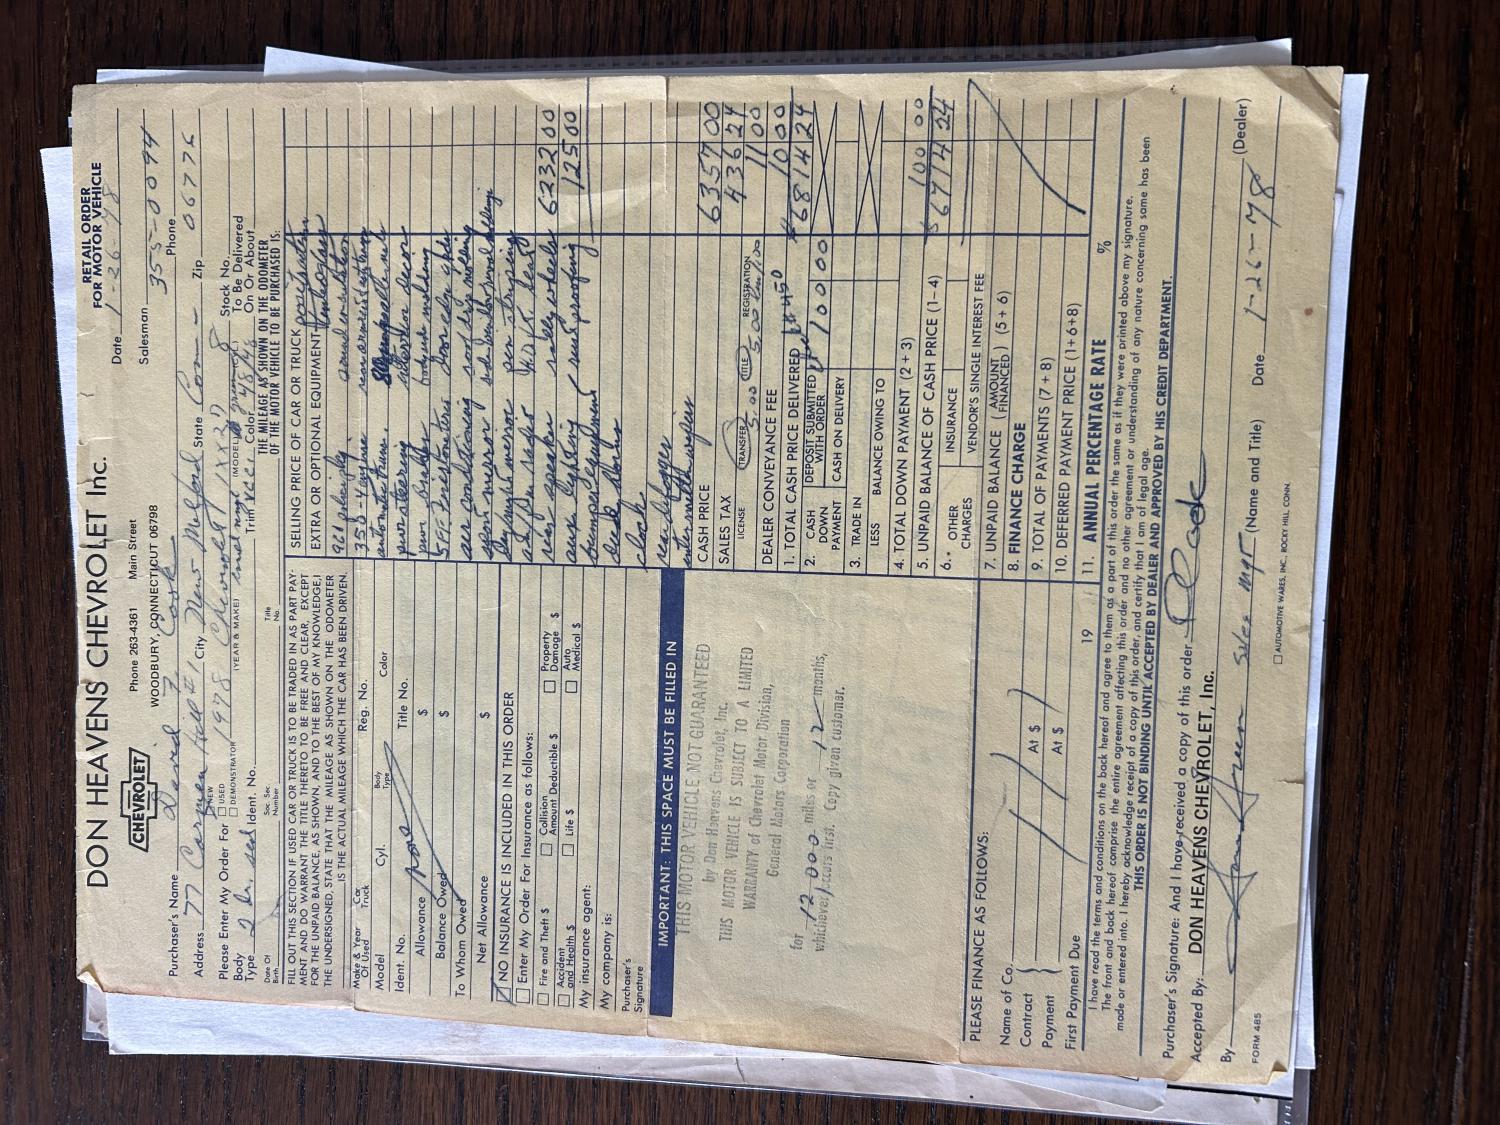 DON HEAVENS CHEVROLET Inc.
RETAIL ORDER
FOR MOTOR VEHICLE
CHEVROLET
Phone 263-4361 Main Street
WOODBURY, CONNECTICUT 06798
Date 1-26-78
Salesman
Purchaser's Name David F Cook 355-0094
Phone
Address 77 Carmen Hill #1 City New Milford State Conn - Zip 06776
Please Enter My Order For NEW USED DEMONSTRATOR 1978 Chevrolet 1XX27 8
(YEAR & MAKE) (MODEL) Stock No.
Body Type 2 Dr. sed Ident. No. Trim Color
To Be Delivered On Or About
Date Of Birth Soc. Sec. Number Title No.
THE MILEAGE AS SHOWN ON THE ODOMETER
OF THE MOTOR VEHICLE TO BE PURCHASED IS:
FILL OUT THIS SECTION IF USED CAR OR TRUCK IS TO BE TRADED IN AS PART PAY-
MENT AND DO WARRANT THE TITLE THERETO TO BE FREE AND CLEAR, EXCEPT
FOR THE UNPAID BALANCE, AS SHOWN, AND TO THE BEST OF MY KNOWLEDGE, I
THE UNDERSIGNED, STATE THAT THE MILEAGE AS SHOWN ON THE ODOMETER
IS THE ACTUAL MILEAGE WHICH THE CAR HAS BEEN DRIVEN.
Make & Year Of Used Car Truck Reg. No.
Model Cyl. Body Type Color
Ident. No. None Title No.
Allowance $
Balance Owed $
To Whom Owed
Net Allowance $
NO INSURANCE IS INCLUDED IN THIS ORDER
Enter My Order For Insurance as follows:
Fire and Theft $ Collision Amount Deductible $ Property Damage $
Accident and Health $ Life $ Auto Medical $
My insurance agent:
My company is:
Purchaser's Signature
IMPORTANT: THIS SPACE MUST BE FILLED IN
THIS MOTOR VEHICLE NOT GUARANTEED
by Don Heavens Chevrolet, Inc.
THIS MOTOR VEHICLE IS SUBJECT TO A LIMITED
WARRANTY of Chevrolet Motor Division,
General Motors Corporation
for 12 000 miles or 12 months,
whichever occurs first. Copy given customer.
PLEASE FINANCE AS FOLLOWS:
Name of Co.
Contract At $
Payment At $
First Payment Due 19
SELLING PRICE OF CAR OR TRUCK
EXTRA OR OPTIONAL EQUIPMENT
350-4 engine
automatic trans.
power steering
power brakes
air conditioning
sport mirror
rear speaker rally wheels 6232 00
aux lighting rust proofing 125 00
bumper equipment
deck
clock
rear defogger
CASH PRICE 6357 00
SALES TAX 436 24
LICENSE TRANSFER 5.00 TITLE 5.00 REGISTRATION 1.00 11 00
DEALER CONVEYANCE FEE 10 00
1. TOTAL CASH PRICE DELIVERED 6814 24
2. CASH DOWN PAYMENT DEPOSIT SUBMITTED WITH ORDER 100 00
CASH ON DELIVERY
3. TRADE IN
LESS BALANCE OWING TO
4. TOTAL DOWN PAYMENT (2 + 3) 100 00
5. UNPAID BALANCE OF CASH PRICE (1-4) 6714 24
6.* OTHER CHARGES INSURANCE
VENDOR'S SINGLE INTEREST FEE
7. UNPAID BALANCE (AMOUNT FINANCED) (5 + 6)
8. FINANCE CHARGE
9. TOTAL OF PAYMENTS (7 + 8)
10. DEFERRED PAYMENT PRICE (1+6+8)
11. ANNUAL PERCENTAGE RATE %
I have read the terms and conditions on the back hereof and agree to them as a part of this order the same as if they were printed above my signature.
The front and back hereof comprise the entire agreement affecting this order and no other agreement or understanding of any nature concerning same has been
made or entered into. I hereby acknowledge receipt of a copy of this order, and certify that I am of legal age.
THIS ORDER IS NOT BINDING UNTIL ACCEPTED BY DEALER AND APPROVED BY HIS CREDIT DEPARTMENT.
Purchaser's Signature: And I have received a copy of this order.
Accepted By: DON HEAVENS CHEVROLET, Inc.
By Sales Mgr (Name and Title) Date 1-26-78 (Dealer)
FORM 485
AUTOMOTIVE WARES, INC. ROCKY HILL, CONN.